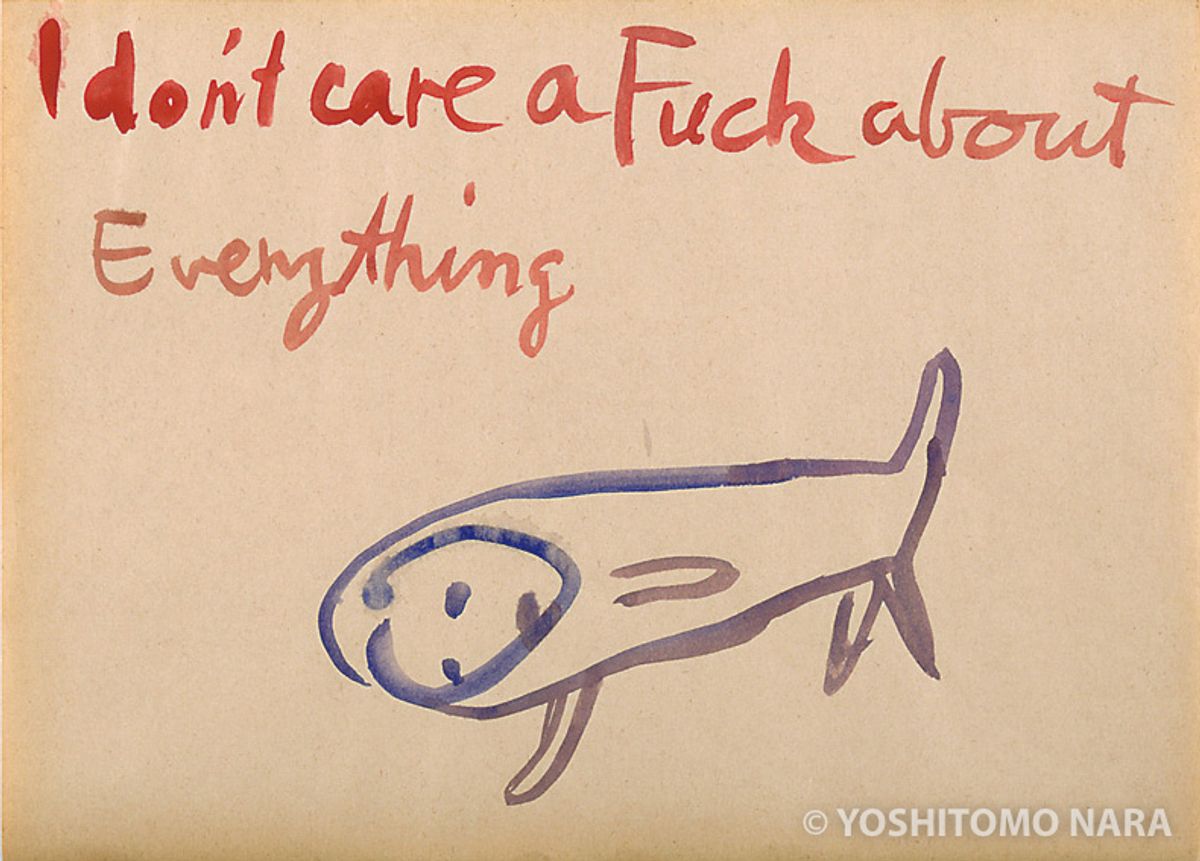 I don't care a Fuck about
Everything
© YOSHITOMO NARA